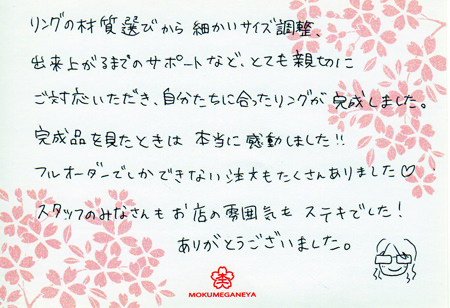 リングの材質選びから 細かいサイズ調整、
出来上がるまでのサポートなど、とても親切に
ご対応いただき、自分たちに合ったリングが 完成しました。
完成品を見たときは 本当に 感動しました!!
フルオーダーでしかできない注文もたくさんありました♡
スタッフのみなさんも お店の雰囲気も ステキでした!
ありがとうございました。
MOKUMEGANEYA